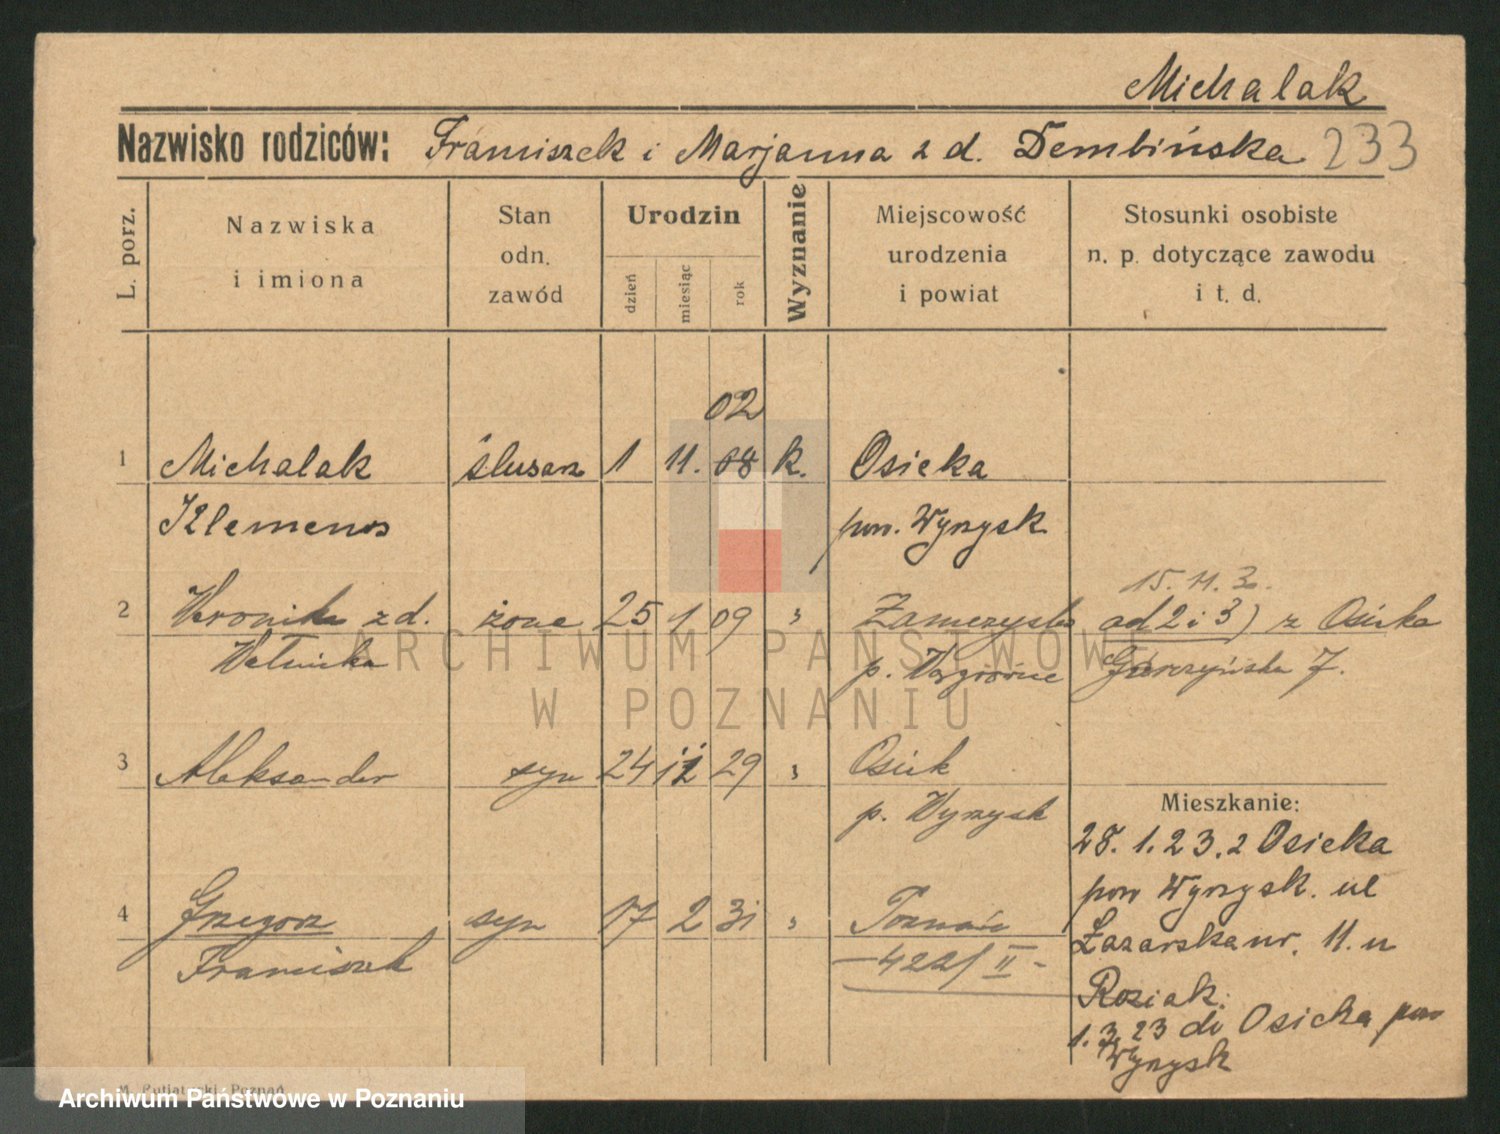 Michalak
Nazwisko rodziców: Franciszek i Marjanna z d. Dembińska 233
L. porz.
Nazwiska i imiona
Stan odn. zawód
Urodzin
dzień
miesiąc
rok
Wyznanie
Miejscowość urodzenia i powiat
Stosunki osobiste n. p. dotyczące zawodu i t. d.
02
1 Michalak ślusarz 1 11. 08 k. Osieka
Klemens pow. Wyrzysk
15. 11. 3
2 Weronika z d. żona 25 1 09 " od 2 i 3) z Osieka
p. Garczyńska 7.
3 Aleksander syn 24 12 29 " Osiek
p. Wyrzysk
Mieszkanie:
28. 1. 23. z Osieka
pow Wyrzysk. ul
Łazarska nr. 11. u
4 Grzegorz syn 17 2 31 " Poznań
Franciszek 422/II
Roziak.
1. 3. 23 do Osieka pow
Wyrzysk
ARCHIWUM PAŃSTWOWE
W POZNANIU
Poznań
Archiwum Państwowe w Poznaniu